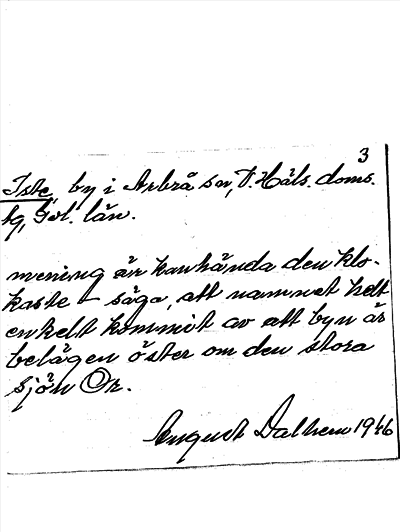 3
Iste, by i Arbrå sn, V. Häls. doms.
sg, Gvl. län.
mening är kanhända den klo-
kaste – säga, att namnet helt
enkelt kommit av att byn är
belägen öster om den stora
sjön Or.
August Dalhem 1946